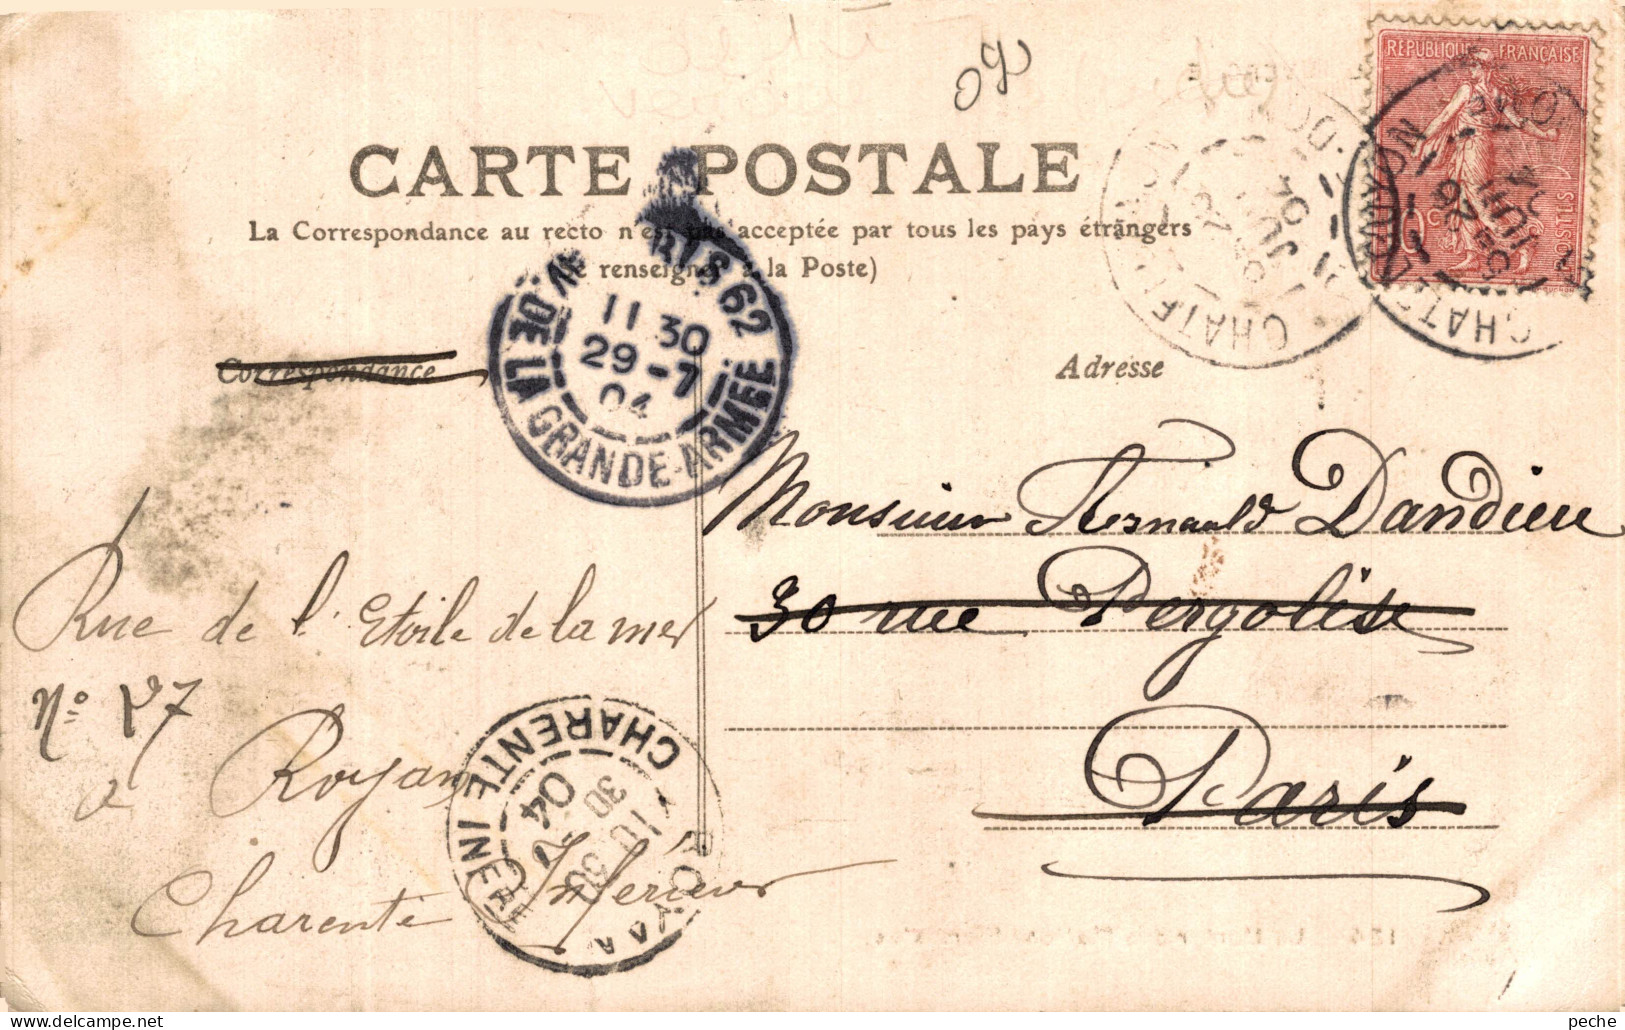 RÉPUBLIQUE FRANÇAISE
POSTES
CARTE POSTALE
La Correspondance au recto n'est pas acceptée par tous les pays étrangers
(Se renseigner à la Poste)
PARIS 62
11 30
29 -7
04
AV. DE LA GRANDE-ARMÉE
Correspondance
Adresse
Monsieur Arnauld Dandieu
30 rue Pergolèse
Paris
Rue de l'Etoile de la mer
No 27
à Royan
Charente Inférieure
ROYAN
10 30
30 -7
04
CHARENTE INFRE
peche